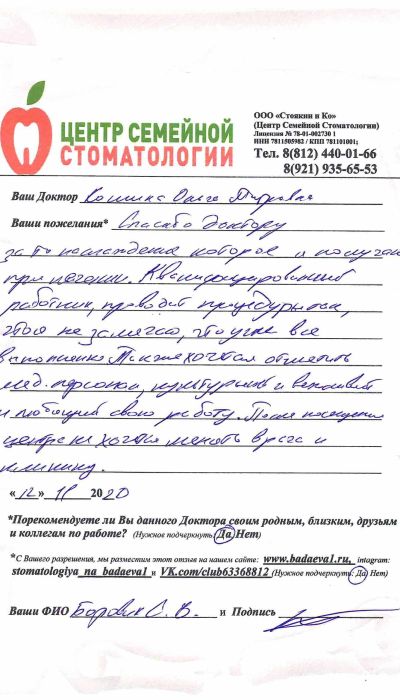 ЦЕНТР СЕМЕЙНОЙ
СТОМАТОЛОГИИ
ООО «Стоякин и Ко»
(Центр Семейной Стоматологии)
Лицензия № 78-01-002730 1
ИНН 7811505982 / КПП 781101001;
Тел. 8(812) 440-01-66
8(921) 935-65-53
Ваш Доктор Ольга
Ваши пожелания* Спасибо доктору
за то наслаждение которое я получаю
при лечении. Квалифицированный
работник, проводит процедуры так,
что я не замечаю, что уже все
выполненно. Также хотел отметить
мед. персонал, культурный и вежливый
и любящий свою работу. После посещения
центра не хочется менять врача и
клинику.
«12» 11 2020
*Порекомендуете ли Вы данного Доктора своим родным, близким, друзьям
и коллегам по работе? (Нужное подчеркнуть: Да Нет)
*С Вашего разрешения, мы разместим этот отзыв на нашем сайте: www.badaeva1.ru, intagram:
stomatologiya_na_badaeva1 и VK.com/club63368812 (Нужное подчеркнуть: Да Нет)
Ваши ФИО Боровик С. В. и Подпись